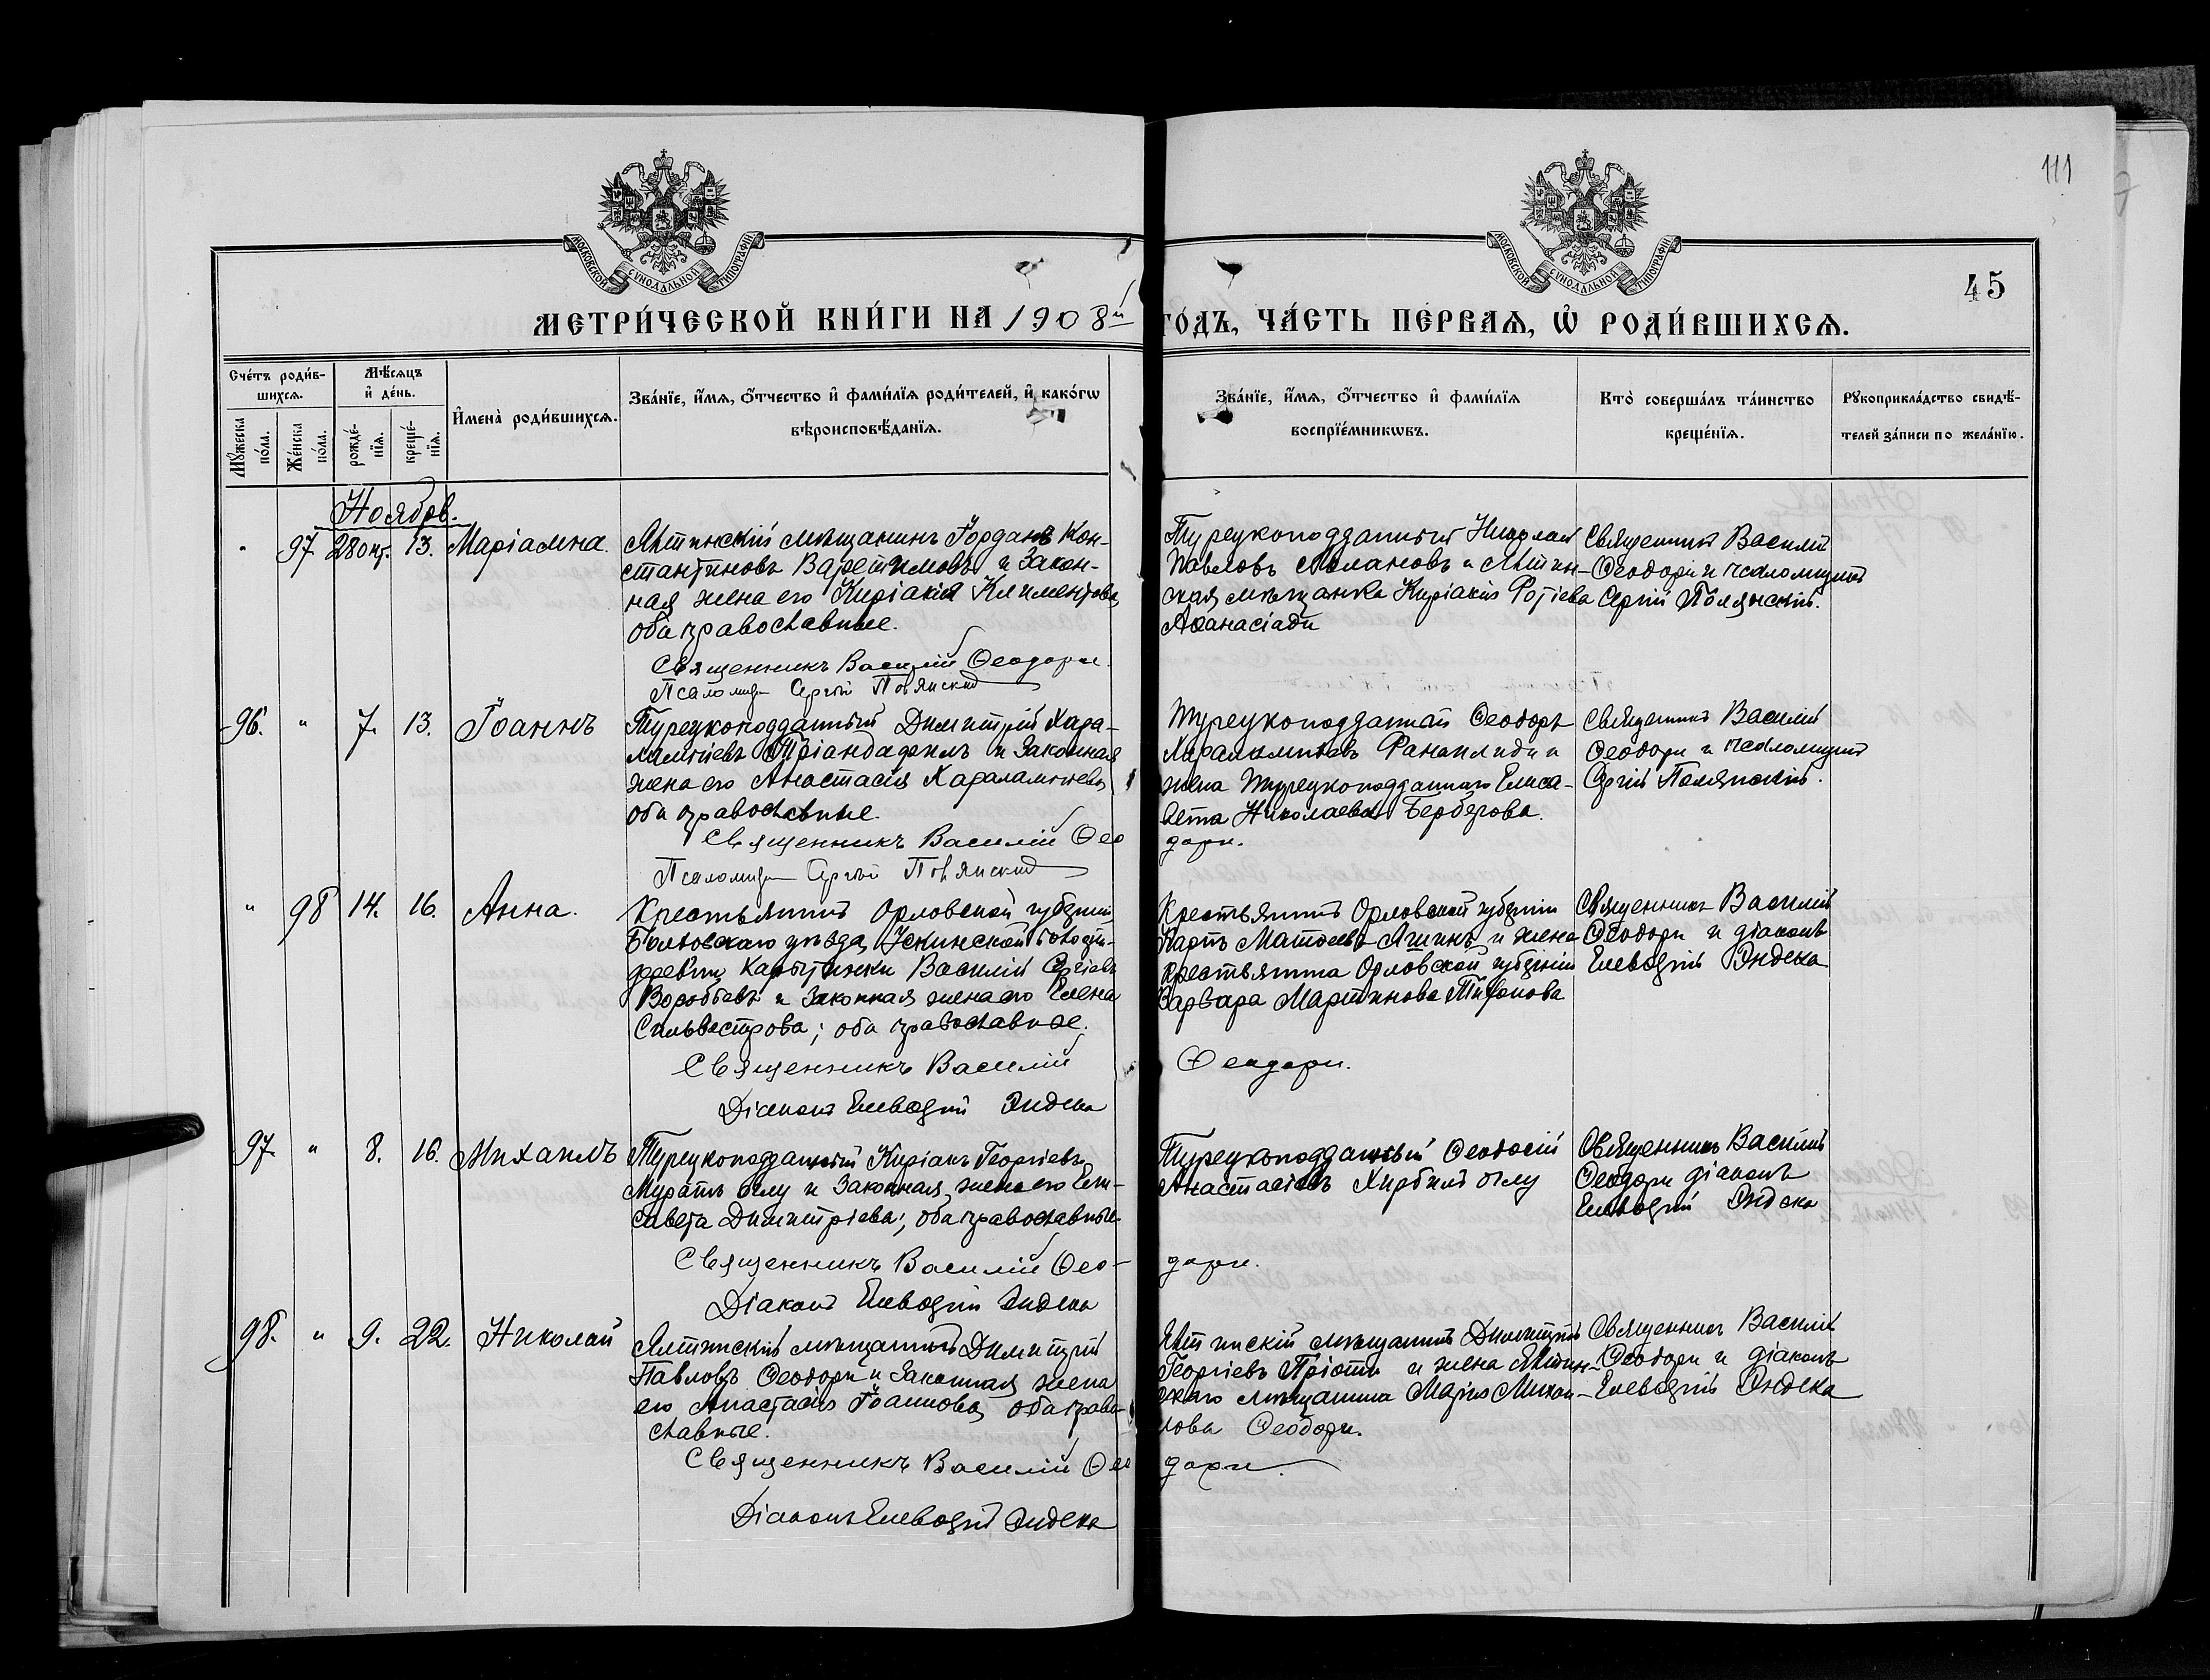 111
МОСКОВСКОЙ СѴНОДАЛЬНОЙ ТИПОГРАФІИ
МОСКОВСКОЙ СѴНОДАЛЬНОЙ ТИПОГРАФІИ
45
МЕТРИ́ЧЕСКОЙ КНИ́ГИ НА 1908й ГО́ДЪ, ЧА́СТЬ ПЕ́РВАѦ, Ѡ҆ РОДИ́ВШИХСѦ.
Сче́тъ роди́в-
шихсѧ.
Мꙋ́жеска по́ла.
Же́нска по́ла.
Мѣ́сѧцъ
и҆ де́нь.
рожде́-
нїѧ.
креще́-
нїѧ.
И҆мена̀ роди́вшихсѧ.
Зва́нїе, и҆́мѧ, ѻ҆́тчество и҆ фами́лїѧ роди́телей, и҆ како́гѡ
вѣроисповѣ́данїѧ.
Зва́нїе, и҆́мѧ, ѻ҆́тчество и҆ фами́лїѧ
воспрїе́мникѡвъ.
Кто̀ соверша́лъ та́инство
креще́нїѧ.
Рꙋкоприкла́дство свидѣ́-
телей за́писи по жела́нїю.
Ноябрь.
" 97 28 окт. 13. Маріамна.
Ялтинскій мѣщанинъ Іорданъ Кон-
стантиновъ и Закон-
ная жена его Киріакія Климентова,
оба православные.
Священникъ Василій Ѳеодори.
Псаломщ Сергій Полянскій
Турецкоподданный Николай
Павловъ и Ялтин-
ская мѣщанка Киріакія Фотіева
Аѳанасіади
Священникъ Василій
Ѳеодори и псаломщикъ
Сергій Полянскій.
96. " 7. 13. Іоаннъ
Турецкоподданный Димитрій Хара-
лампіевъ Тріандафилъ и Законная
жена его Анастасія Харалампіева,
оба православные.
Священникъ Василій Ѳео
дори.
Псаломщ Сергій Полянскій
Турецкоподданный Ѳеодоръ
Харалампіевъ и
жена Турецкоподданнаго Елиса-
вета Николаева Берберова.
Священникъ Василій
Ѳеодори и псаломщикъ
Сергій Полянскій.
" 98 14. 16. Анна.
Крестьянинъ Орловской губерніи,
Болховскаго уѣзда, волости,
деревни Василій Сергіевъ
Воробьевъ и Законная жена его Елена
Сильвестрова; оба православные.
Священникъ Василій
Ѳеодори.
Діаконъ Елевѳерій Эндека
Крестьянинъ Орловской губерніи
Карпъ Матѳеевъ Яшинъ и жена
крестьянина Орловской губерніи
Варвара Мартинова
Священникъ Василій
Ѳеодори и діаконъ
Елевѳерій Эндека
97. " 8. 16. Михаилъ
Турецкоподданный Киріакъ Георгіевъ
Муратъ оглу и Законная жена его Ели-
савета Димитріева; оба православные.
Священникъ Василій Ѳео-
дори.
Діаконъ Елевѳерій Эндека
Турецкоподданный Ѳеодосій
Анастасіевъ оглу
Священникъ Василій
Ѳеодори діаконъ
Елевѳерій Эндека
98. " 9. 22. Николай
Ялтинскій мѣщанинъ Димитрій
Павловъ Ѳеодори и Законная жена
его Анастасія Іоаннова, оба право-
славные.
Священникъ Василій Ѳео
дори.
Діаконъ Елевѳерій Эндека
Ялтинскій мѣщанинъ Димитрій
Георгіевъ и жена Ялтин-
скаго мѣщанина Марія Михаи-
лова Ѳеодори.
Священникъ Василій
Ѳеодори и діаконъ
Елевѳерій Эндека